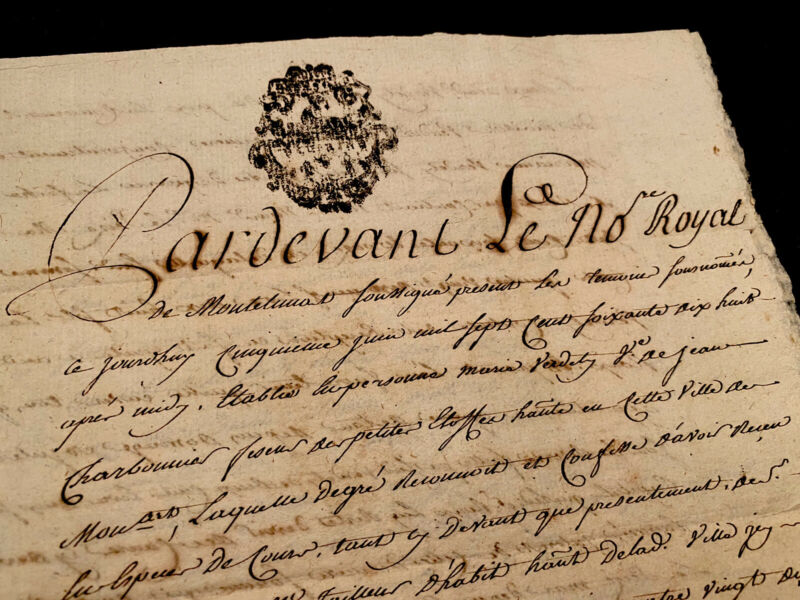 Pardevant Le No.re Royal
de Montelimat soussigné present les temoins sousnommés,
ce jourdhuy Cinquieme juin mil sept Cent soixante dix huit
aprés midy, Etablie en personne marie Verdet V.e de jean
Charbonnier faseur de petites Etoffes hãnte en cette Ville de
Mon.art, Laquelle de gré Reconnoit et Confesse d'avoir Receu
En Espece de Cours, tant cy devant que presentement, de S.r
tailleur d'habit hãnt delad. Ville icy
vingt dix